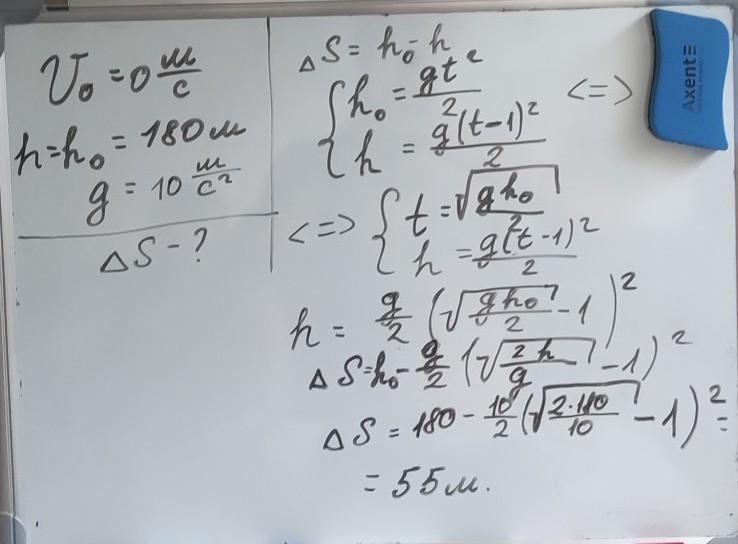 V₀ = 0 м/с
h = h₀ = 180 м
g = 10 м/с²
ΔS - ?
ΔS = h₀ - h
{ h₀ = gt²/2 <=>
{ h = g(t-1)²/2
<=> { t = √(gh₀/2)
{ h = g(t-1)²/2
h = g/2 (√(gh₀/2) - 1)²
ΔS = h₀ - g/2 (√(2h/g) - 1)²
ΔS = 180 - 10/2 (√(2·180/10) - 1)² =
= 55 м.
Axent